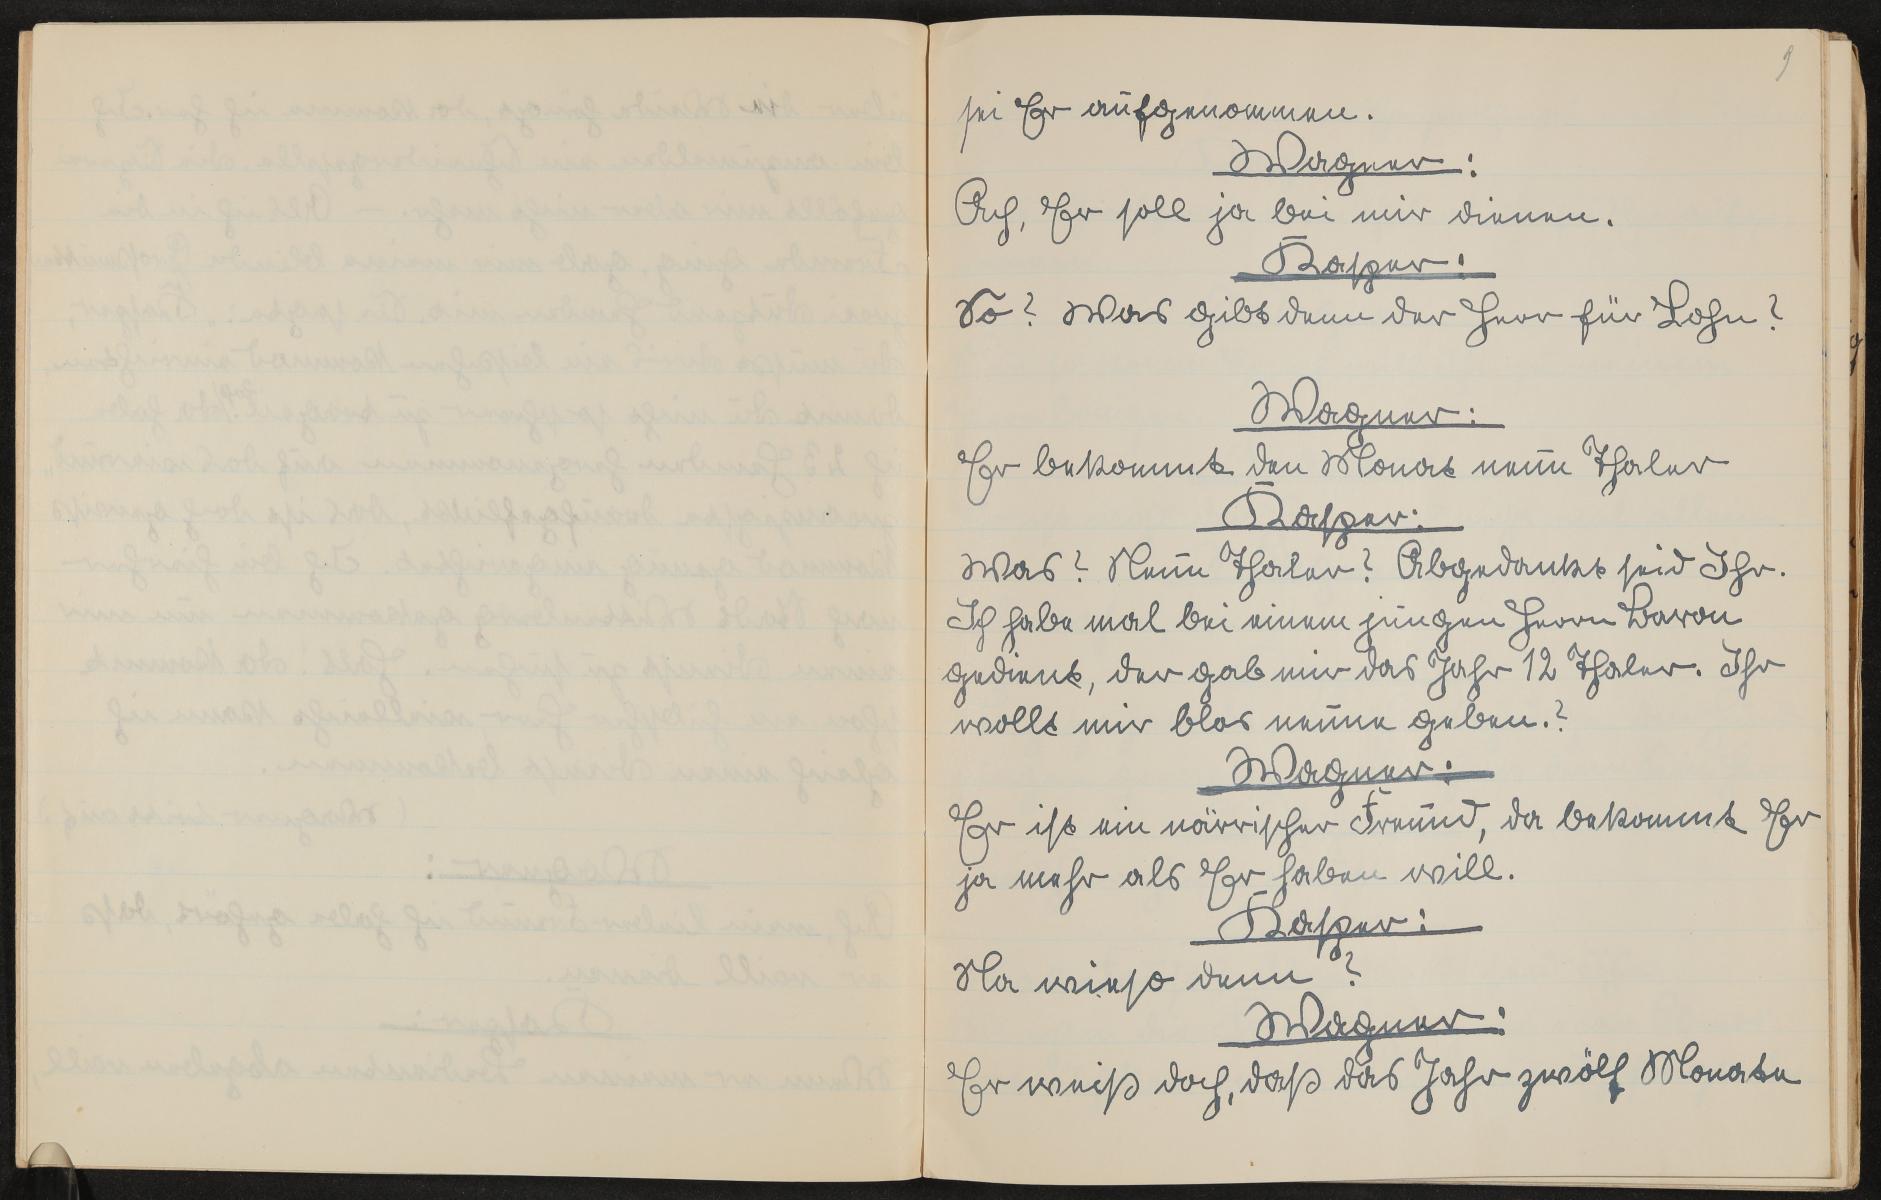 9
sei Er aufgenommen.
Wagner:
Ach, Er soll ja bei mir dienen.
Kasper:
So? Was gibt denn der Herr für Lohn?
Wagner:
Er bekommt den Monat neun Thaler
Kasper:
Was? Neun Thaler? Abgedankt seid Ihr.
Ich habe mal bei einem jungen Herrn Baron
gedient, der gab mir das Jahr 12 Thaler. Ihr
wollt mir blos neune geben.?
Wagner:
Er ist ein närrischer Freund, da bekommt Er
ja mehr als Er haben will.
Kasper:
Na wieso denn?
Wagner:
Er weiß doch, daß das Jahr zwölf Monate